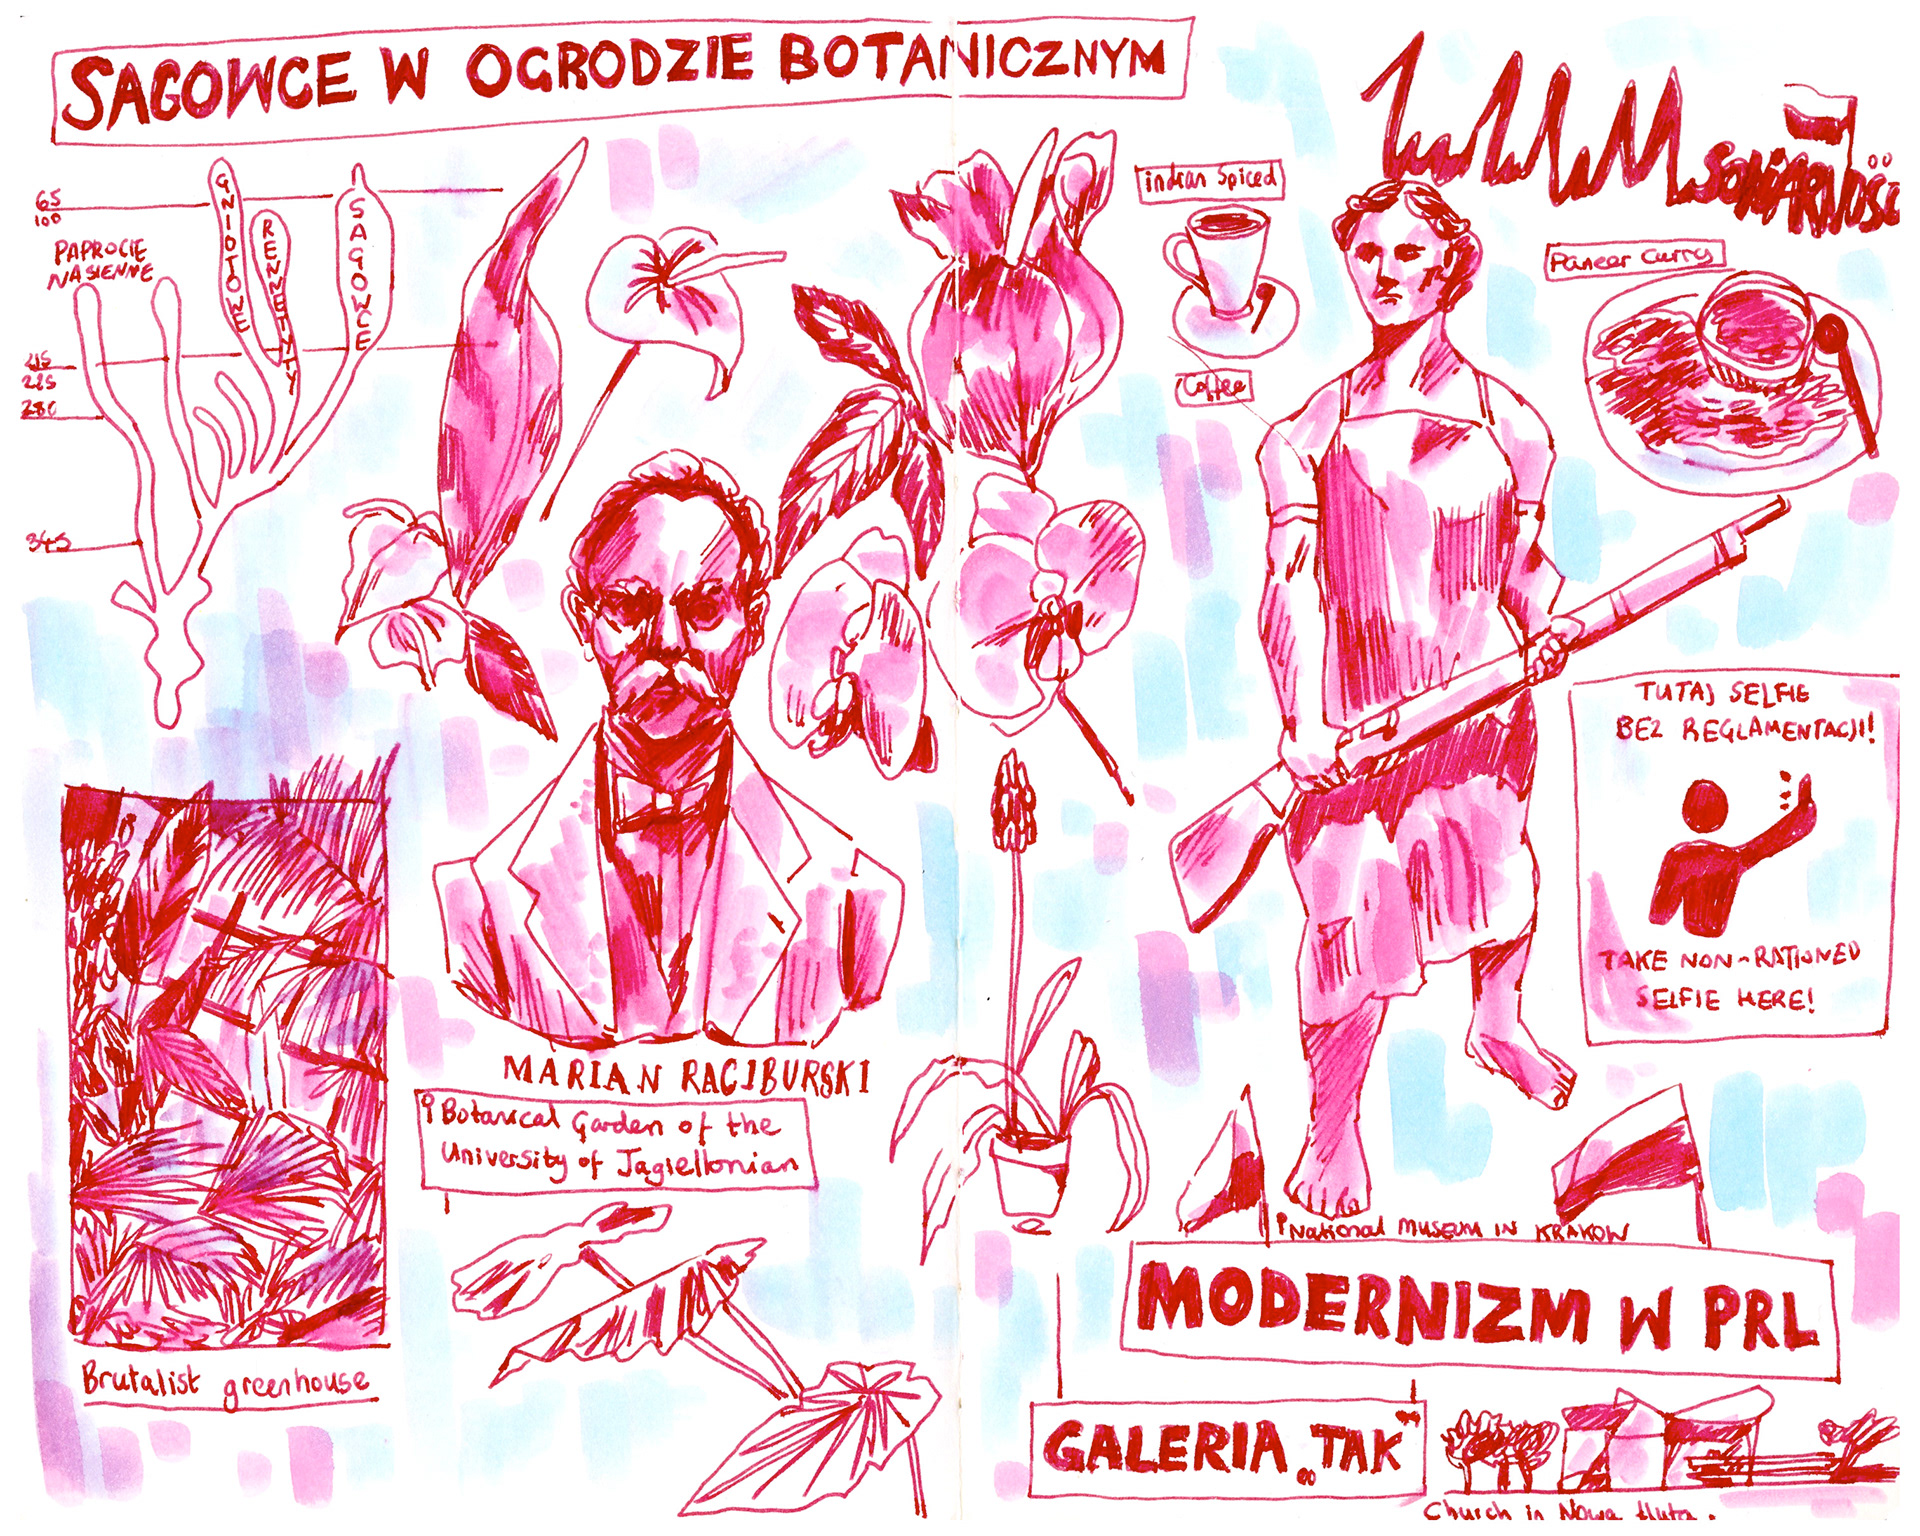 SAGOWCE W OGRODZIE BOTANICZNYM
65
100
PAPROCIE
NASIENNE
GNIOTOWE
BENNETYTY
SAGOWCE
215
225
280
345
Brutalist greenhouse
MARIAN RACIBURSKI
Botanical Garden of the
University of Jagiellonian
indian Spiced
Coffee
SOLIDARNOŚĆ
Paneer Curry
TUTAJ SELFIE
BEZ REGLAMENTACJI!
TAKE NON-RATIONED
SELFIE HERE!
National Museum IN KRAKOW
MODERNIZM W PRL
GALERIA „TAK”
Church in Nowa Huta.